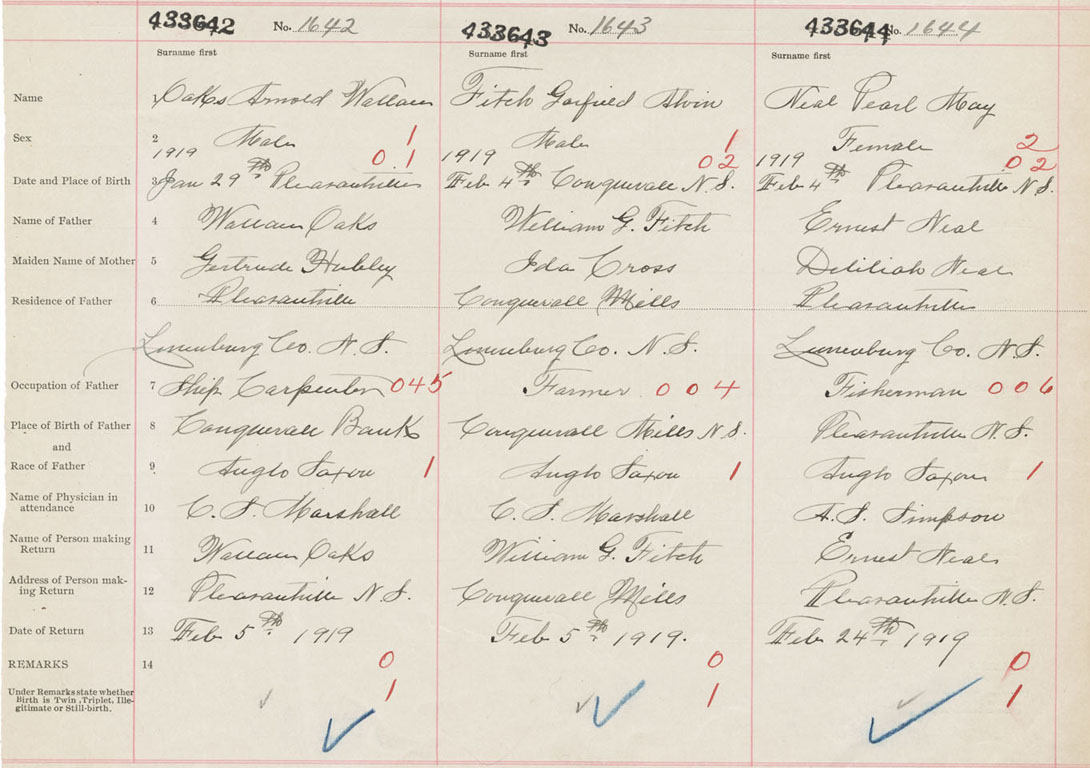 433642 No. 1642 433643 No. 1643 433644 No. 1644
Surname first Surname first Surname first
Name Oaks Arnold Fitch Garfield Alvin Neal Pearl May
Sex 2 Male 1 Male 1 Female 2
1919 0 1 1919 0 2 1919 0 2
Date and Place of Birth 3 Jan 29th Pleasantville Feb 4th Conquerall N.S. Feb 4th Pleasantville N.S.
Name of Father 4 Oaks William G. Fitch Ernest Neal
Maiden Name of Mother 5 Gertrude Hubley Ida Cross Deliliah Neal
Residence of Father 6 Pleasantville Conquerall Mills Pleasantville
Lunenburg Co. N.S. Lunenburg Co. N.S. Lunenburg Co. N.S.
Occupation of Father 7 Ship Carpenter 045 Farmer 004 Fisherman 006
Place of Birth of Father 8 Conquerall Banks Conquerall Mills N.S. Pleasantville N.S.
and
Race of Father 9 Anglo Saxon 1 Anglo Saxon 1 Anglo Saxon 1
Name of Physician in
attendance 10 C. S. Marshall C. S. Marshall A. S. Simpson
Name of Person making
Return 11 Oaks William G. Fitch Ernest Neal
Address of Person mak-
ing Return 12 Pleasantville N.S. Conquerall Mills Pleasantville N.S.
Date of Return 13 Feb 5th 1919 Feb 5th 1919. Feb 24th 1919
REMARKS 14 0 0 0
Under Remarks state whether
Birth is Twin, Triplet, Ille-
gitimate or Still-birth. 1 1 1